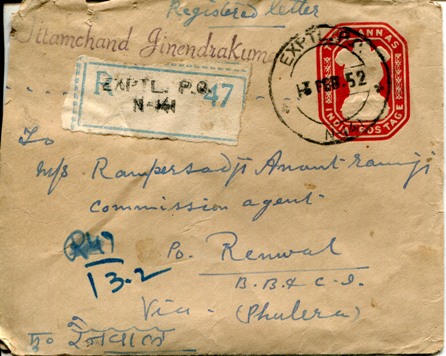 Registered letter
Uttamchand Jinendrakuma
EXPTL. P.O.
13 FEB 52
TWO ANNAS
INDIA POSTAGE
R EXPTL. P.O. 47
N-
To
M/s Rampersadji Anant-ramji
commission agent-
Po. Renwal
B.B & C.I.
Via - (Phulera)
R 47
13.2
मु० रेनवाल